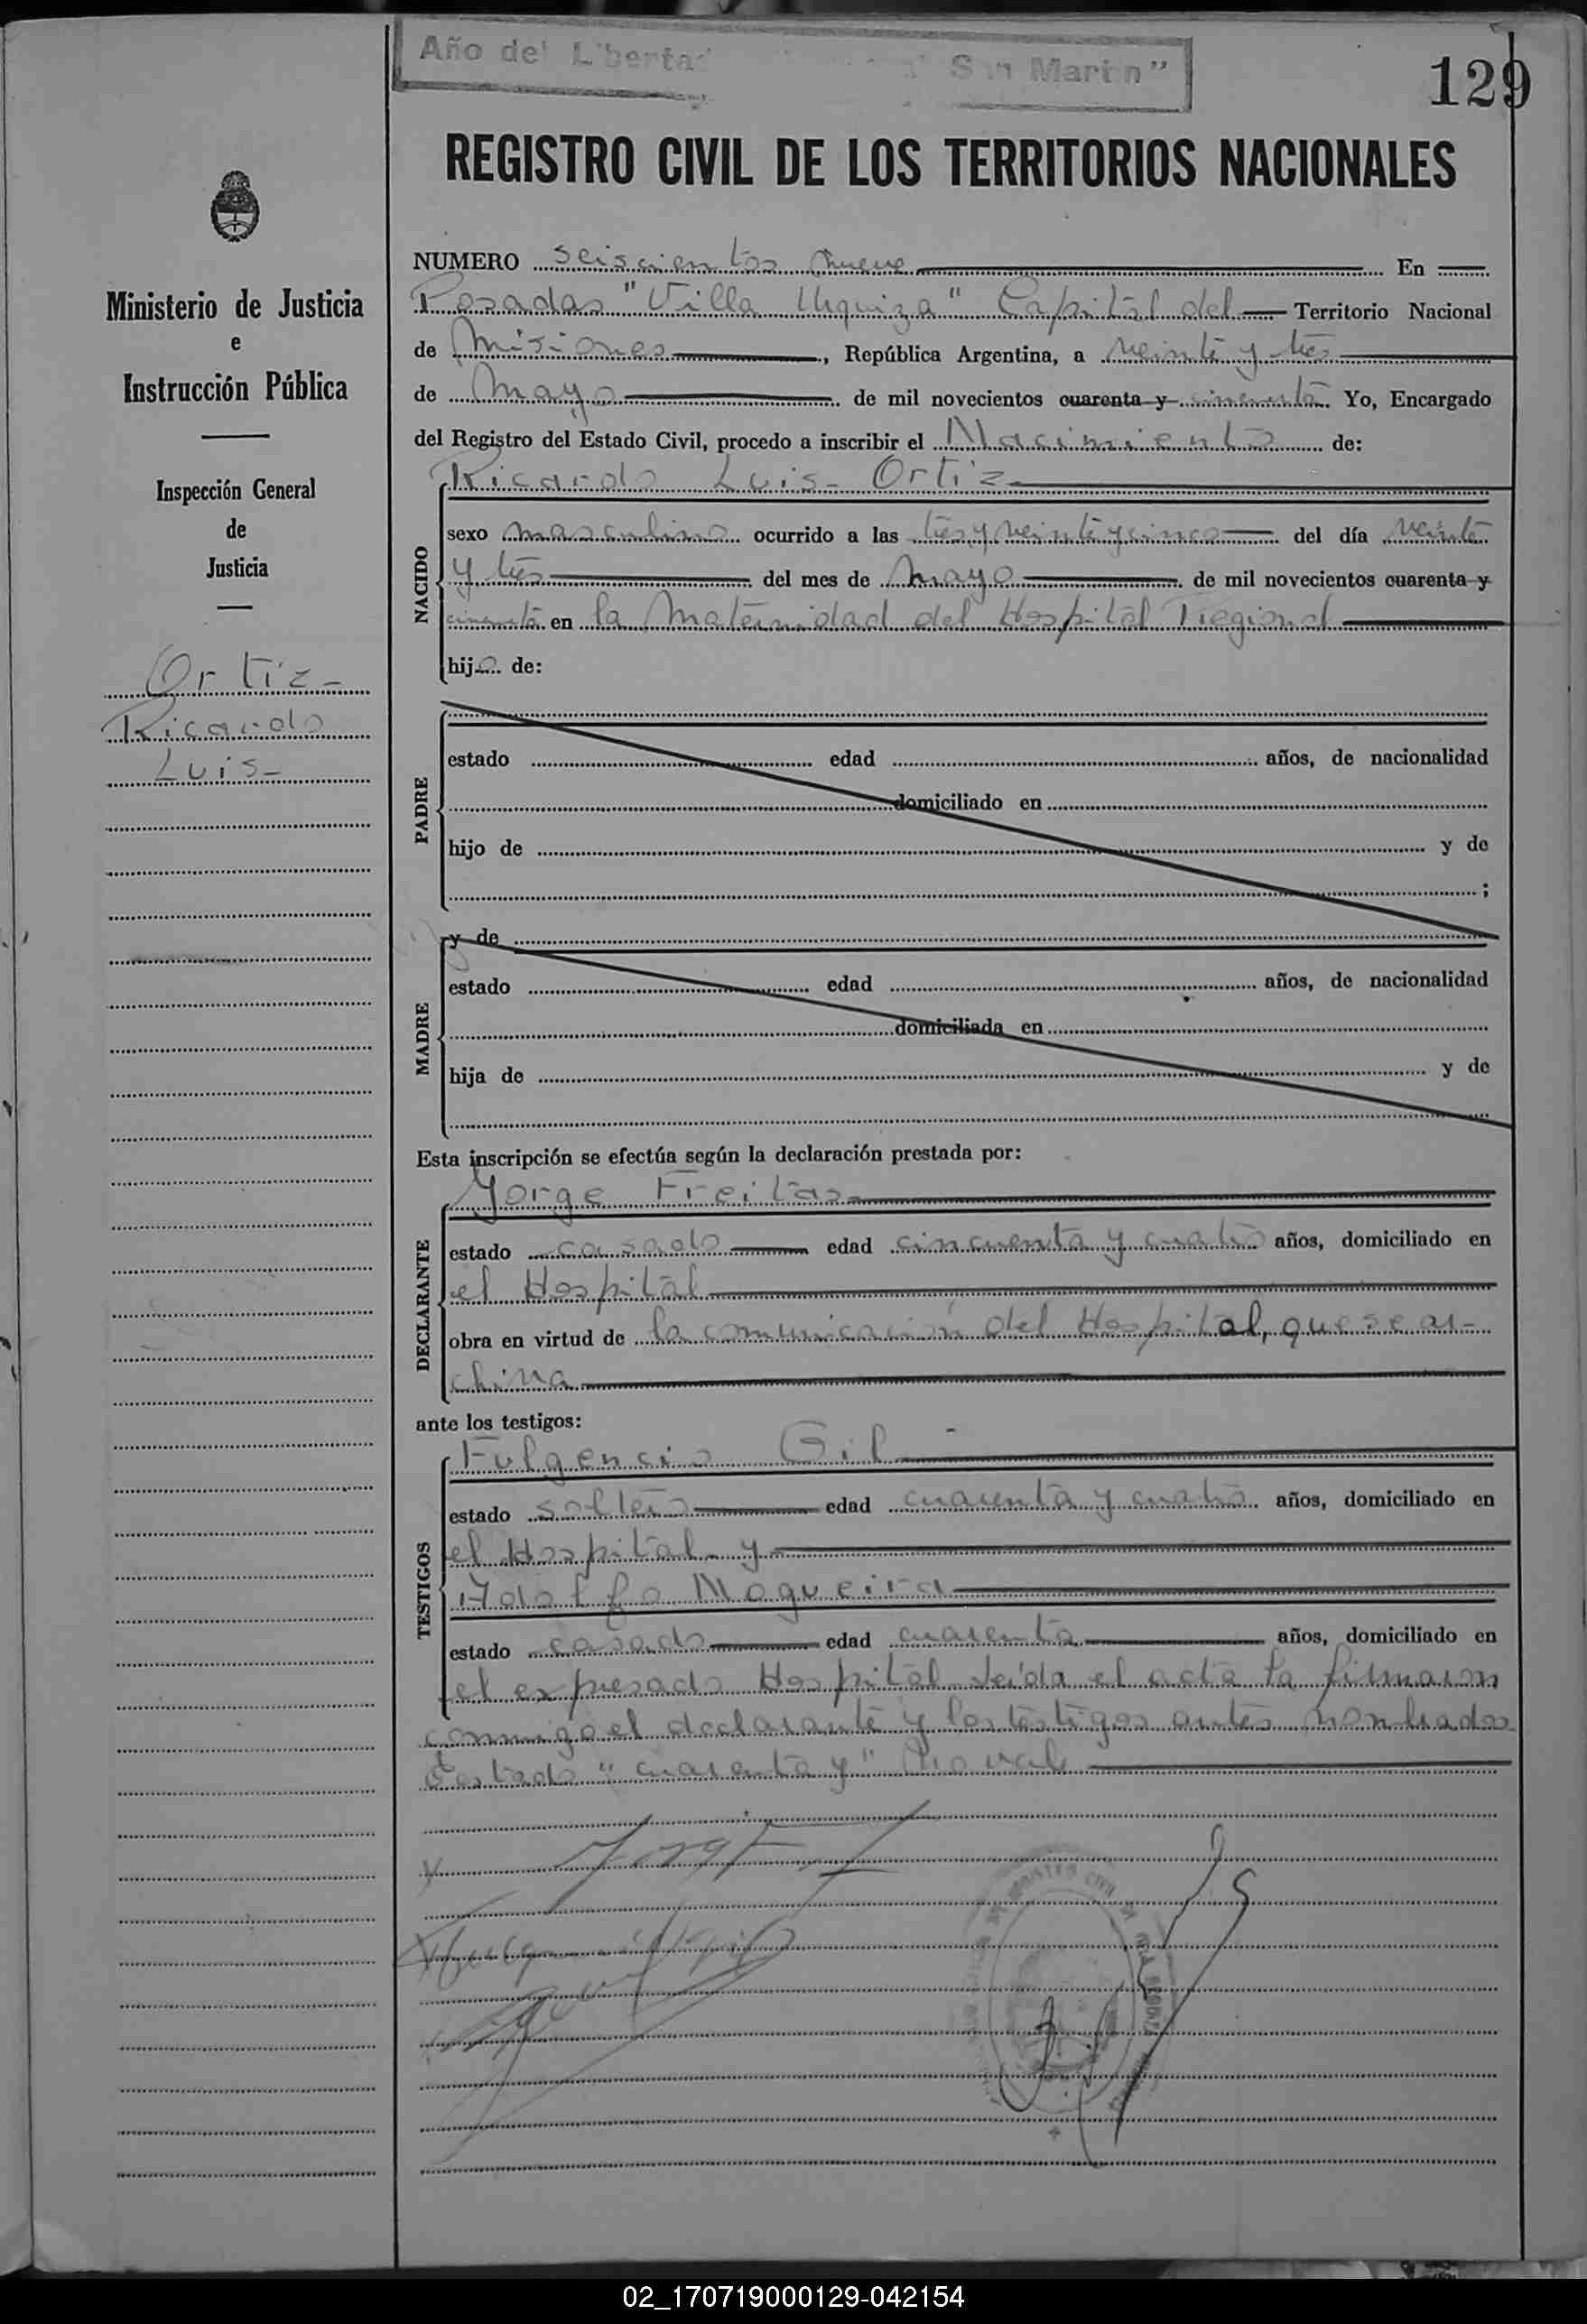 Año del Liberta San Martín”
129
REGISTRO CIVIL DE LOS TERRITORIOS NACIONALES
Ministerio de Justicia
e
Instrucción Pública
Inspección General
de
Justicia
Ortiz-
Ricardo
Luis-
NUMERO seiscientos nueve En
Posadas "Villa Urquiza" Capital del Territorio Nacional
de Misiones, República Argentina, a veinte y tres
de Mayo de mil novecientos cuarenta y cincuenta. Yo, Encargado
del Registro del Estado Civil, procedo a inscribir el Nacimiento de:
Ricardo Luis- Ortiz-
NACIDO
sexo masculino ocurrido a las tres y veinte y cinco del día veinte
y tres del mes de Mayo de mil novecientos cuarenta y
cincuenta en la Maternidad del Hospital Regional
hijo de:
PADRE
estado edad años, de nacionalidad
domiciliado en
hijo de y de
;
MADRE
y de
estado edad años, de nacionalidad
domiciliada en
hija de y de
Esta inscripción se efectúa según la declaración prestada por:
Jorge Freitas-
DECLARANTE
estado casado edad cincuenta y cuatro años, domiciliado en
el Hospital
obra en virtud de la comunicación del Hospital, que se ar-
chiva
ante los testigos:
Fulgencio Gil
TESTIGOS
estado soltero edad cuarenta y cuatro años, domiciliado en
el Hospital- y
Adolfo Nogueira
estado casado edad cuarenta años, domiciliado en
el expresado Hospital leída el acta la firmaron
conmigo el declarante y los testigos antes nombrados
testado "cuarenta y" No vale
REGISTRO CIVIL
02_170719000129-042154